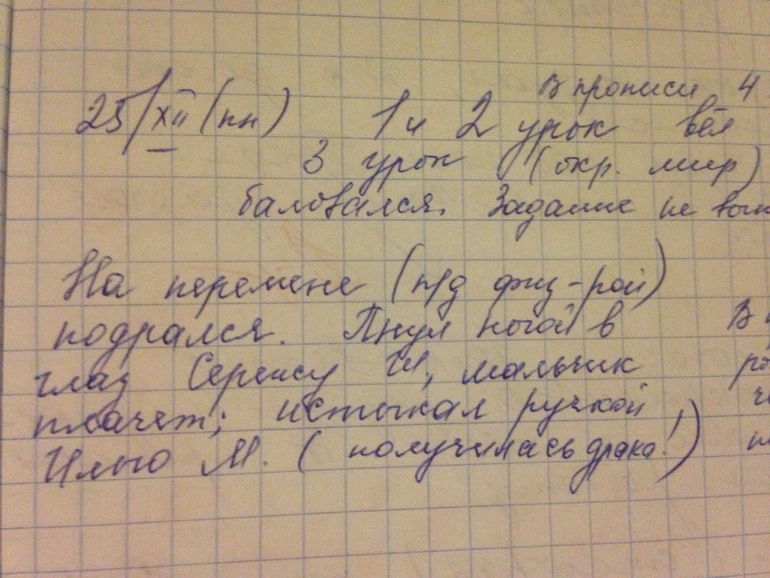 В прописи 4
25/XII (пн) 1 и 2 урок вёл
3 урок (окр. мир)
баловался. Задание не вып
На перемене (п/д физ-рой)
подрался. Пнул ногой в
глаз Сережу Ш, мальчик
плачет; истыкал ручкой
Илью М. (получилась драка!)